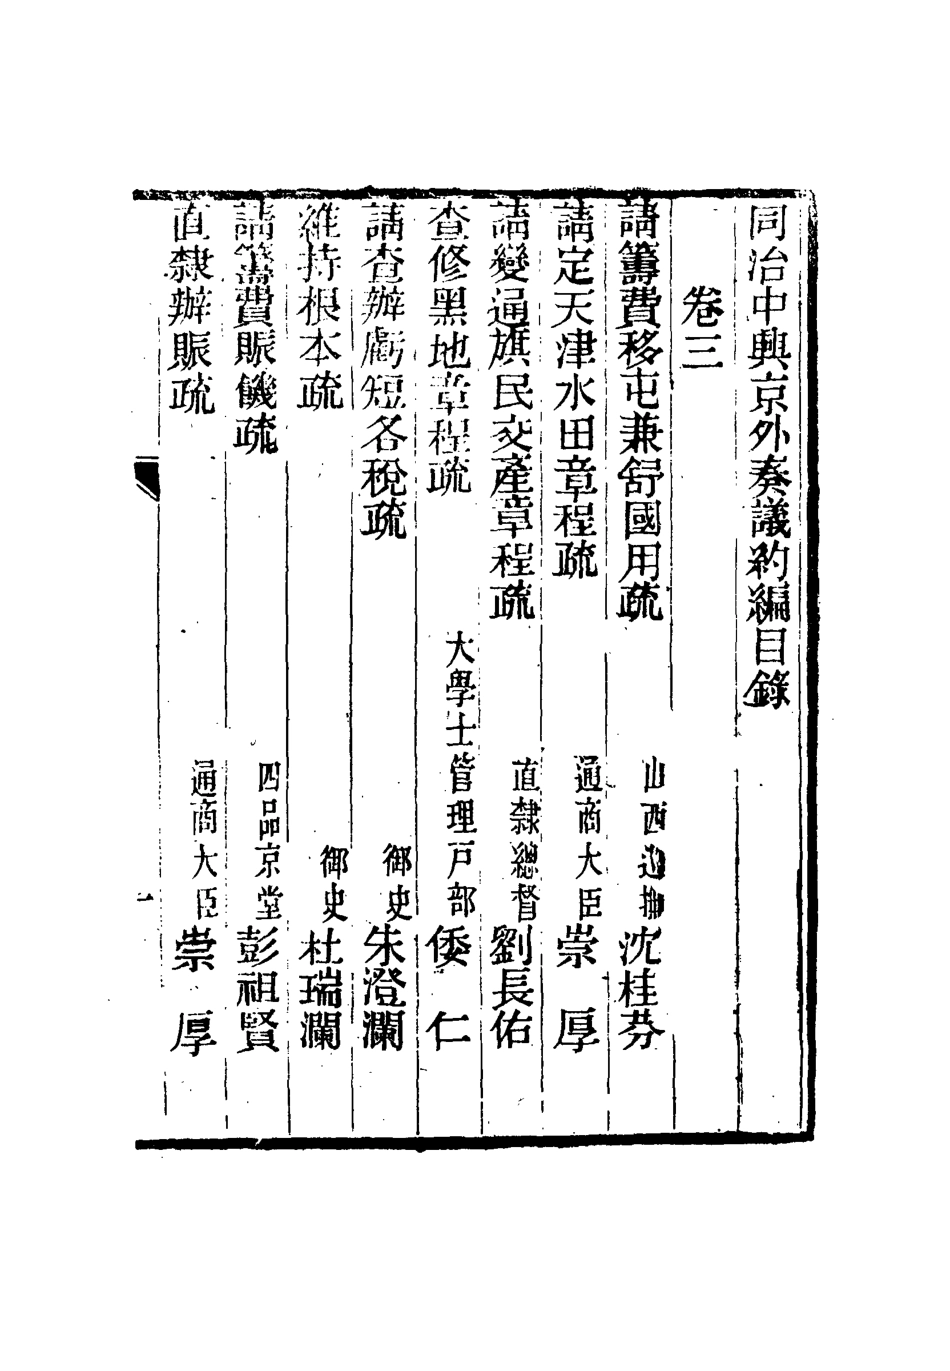 同治中興京外奏議約編目錄
卷三
請籌費移屯兼舒國用疏 山西巡撫 沈桂芬
請定天津水田章程疏 通商大臣 崇厚
請變通旗民交產章程疏 直隸總督 劉長佑
查修黑地章程疏 大學士管理戸部 倭仁
請查辦虧短各稅疏 御史 朱澄瀾
維持根本疏 御史 杜瑞瀾
請籌費賑饑疏 四品京堂 彭祖賢
直隸辦賑疏 通商大臣 崇厚
一